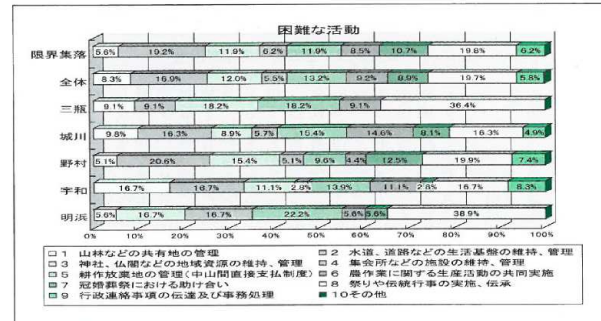 困難な活動
限界集落 5.6% 19.2% 11.9% 6.2% 11.9% 8.5% 10.7% 19.8% 6.2%
全体 8.3% 16.9% 12.0% 5.5% 13.2% 9.2% 8.9% 19.7% 5.8%
三瓶 9.1% 9.1% 18.2% 18.2% 9.1% 36.4%
城川 9.8% 16.3% 8.9% 5.7% 15.4% 14.6% 8.1% 16.3% 4.9%
野村 5.1% 20.6% 15.4% 5.1% 9.6% 4.4% 12.5% 19.9% 7.4%
宇和 16.7% 16.7% 11.1% 2.8% 13.9% 11.1% 2.8% 16.7% 8.3%
明浜 5.6% 16.7% 16.7% 22.2% 5.6% 5.6% 38.9%
0% 10% 20% 30% 40% 50% 60% 70% 80% 90% 100%
1 山林などの共有地の管理
2 水道、道路などの生活基盤の維持、管理
3 神社、仏閣などの地域資源の維持、管理
4 集会所などの施設の維持、管理
5 耕作放棄地の管理(中山間直接支払制度)
6 農作業に関する生産活動の共同実施
7 冠婚葬祭における助け合い
8 祭りや伝統行事の実施、伝承
9 行政連絡事項の伝達及び事務処理
10その他